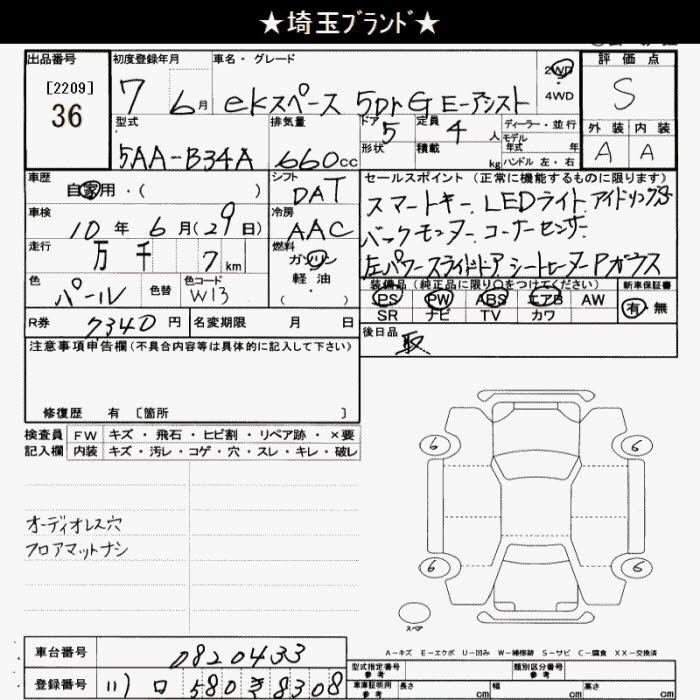 ★埼玉ブランド★
出品番号 初度登録年月 車名・グレード 2WD 評価点
[2209] 7 6月 ekスペース 5Dr G E-アシスト 4WD S
36
型式 排気量 ドア 5 定員 4人 ディーラー・並行 外装 内装
5AA-B34A 660cc 形状 積載 kg モデル年式 年 A A
ハンドル 左・右
車歴 自家用・( ) シフト DAT セールスポイント(正常に機能するものに限ります)
車検 10年6月(29日) 冷房 AAC スマートキー. LEDライト. アイドリングS
走行 万 千 7km 燃料 ガソリン・軽油・( ) バックモニター. コーナーセンサー
左パワースライドドア シートヒーター Pガラス
色 パール 色替 色コード W13 装備品(純正品に限り○をつけてください) 新車保証書
PS PW ABS エアB AW 有・無
SR ナビ TV カワ
R券 7340円 名変期限 月 日 後日品 取
注意事項申告欄(不具合内容等は具体的に記入して下さい)
修復歴 有 〔箇所 〕
検査員 FW キズ・飛石・ヒビ割・リペア跡・×要
記入欄 内装 キズ・汚レ・コゲ・穴・スレ・キレ・破レ
6 6
オーディオレス穴
フロアマットナシ
6 6
スペア
A-キズ E-エクボ U-凹み W-補修跡 S-サビ C-腐食 XX-交換済
車台番号 0820433
型式指定番号 参考 類別区分番号 参考
登録番号 川口 580 き 8308
車庫証明用 参考 長さ cm 幅 cm 高さ cm